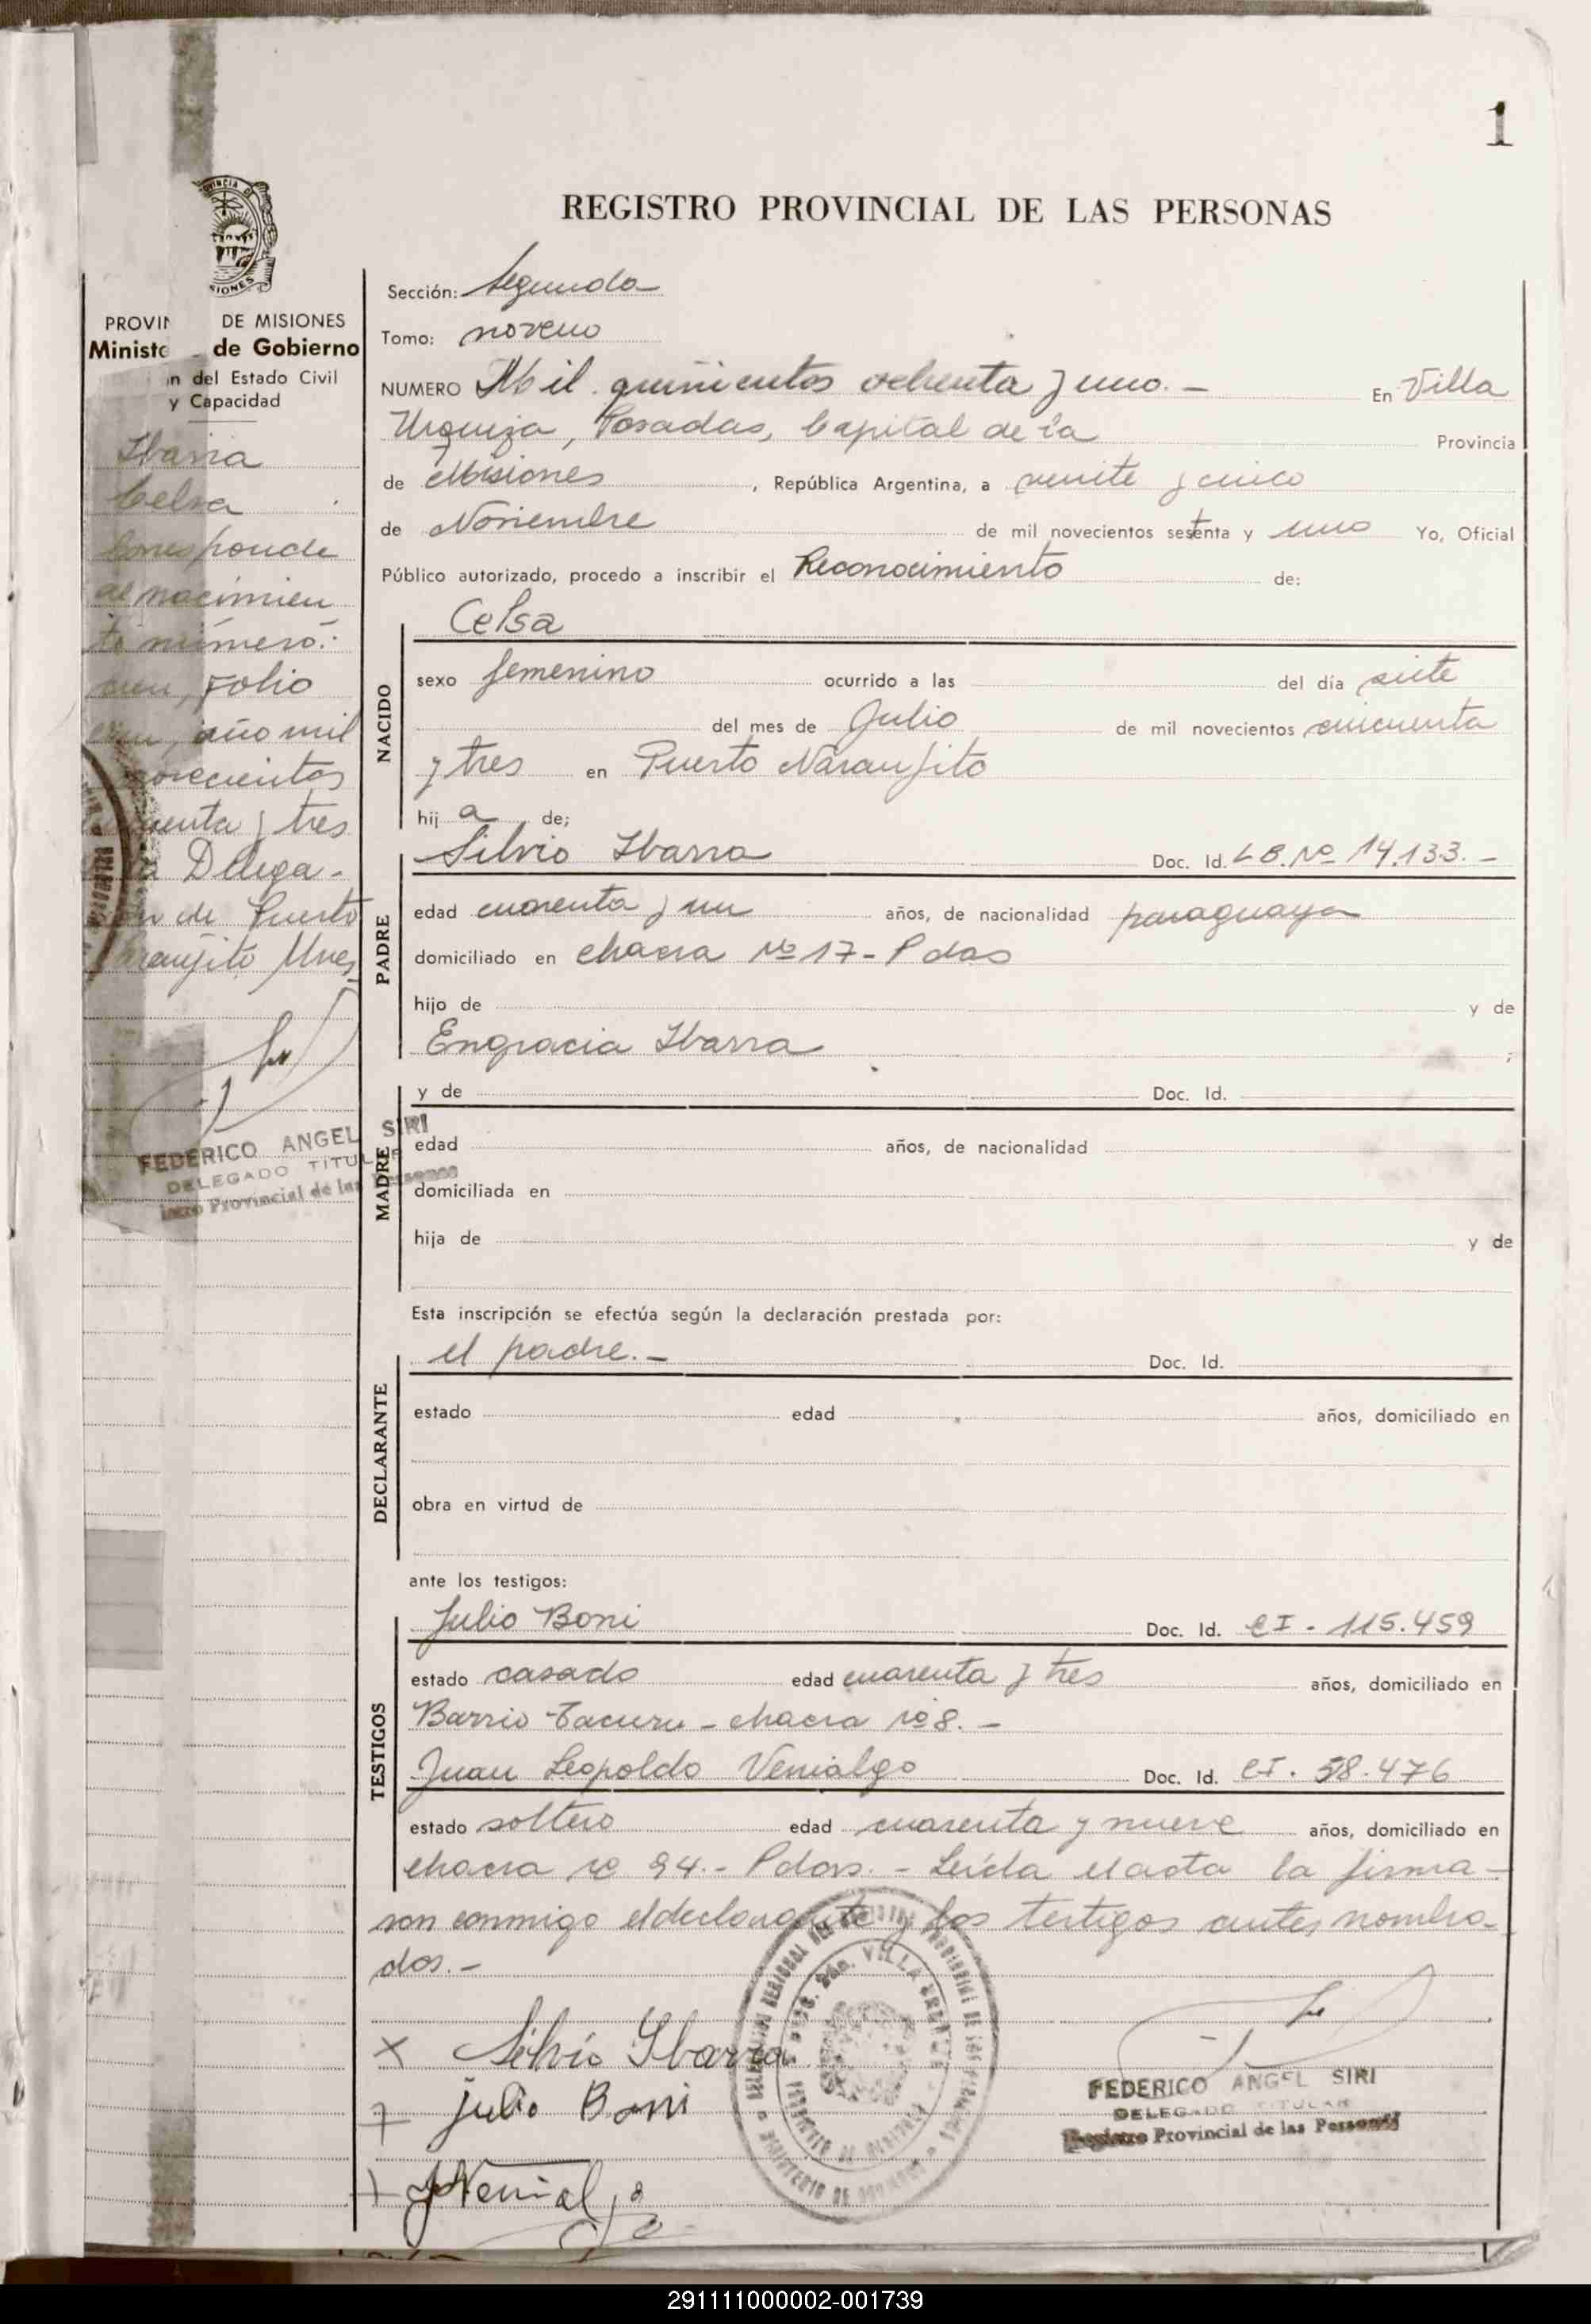 1
REGISTRO PROVINCIAL DE LAS PERSONAS
PROVIN DE MISIONES
Ministe de Gobierno
n del Estado Civil
y Capacidad
Ibarra
Celsa
Corresponde
al nacimien
to número:
cien, Folio
cien, año mil
novecientos
cuenta y tres
la Delega-
ón de Puerto
aranjito Mnes
FEDERICO ANGEL SIRI
DELEGADO TITULAR
istro Provincial de las Personas
Sección: Segunda
Tomo: noveno
NUMERO Mil quinientos ochenta y uno.- En Villa
Urquiza, Posadas, Capital de la Provincia
de Misiones, República Argentina, a veinte y cinco
de Noviembre de mil novecientos sesenta y uno Yo, Oficial
Público autorizado, procedo a inscribir el Reconocimiento de:
NACIDO
Celsa
sexo femenino ocurrido a las del día siete
del mes de Julio de mil novecientos cincuenta
y tres en Puerto Naranjito
hij a de;
PADRE
Silvio Ibarra Doc. Id. LB. Nº 14.133.-
edad cuarenta y un años, de nacionalidad paraguaya
domiciliado en chacra Nº 17 - Pdas
hijo de y de
Engracia Ibarra ;
MADRE
y de Doc. Id.
edad años, de nacionalidad
domiciliada en
hija de y de
Esta inscripción se efectúa según la declaración prestada por:
DECLARANTE
el padre.- Doc. Id.
estado edad años, domiciliado en
obra en virtud de
ante los testigos:
TESTIGOS
Julio Boni Doc. Id. CI - 115.459
estado casado edad cuarenta y tres años, domiciliado en
Barrio Tacuru - chacra nº 8. -
Juan Leopoldo Venialgo Doc. Id. CI. 58.476
estado soltero edad cuarenta y nueve años, domiciliado en
chacra nº 94.- Pdas. - Leída el acta la firma-
ron conmigo el declarante y los testigos antes nombra-
dos.-
x Silvio Ibarra
Julio Boni
FEDERICO ANGEL SIRI
DELEGADO TITULAR
Registro Provincial de las Personas
291111000002-001739